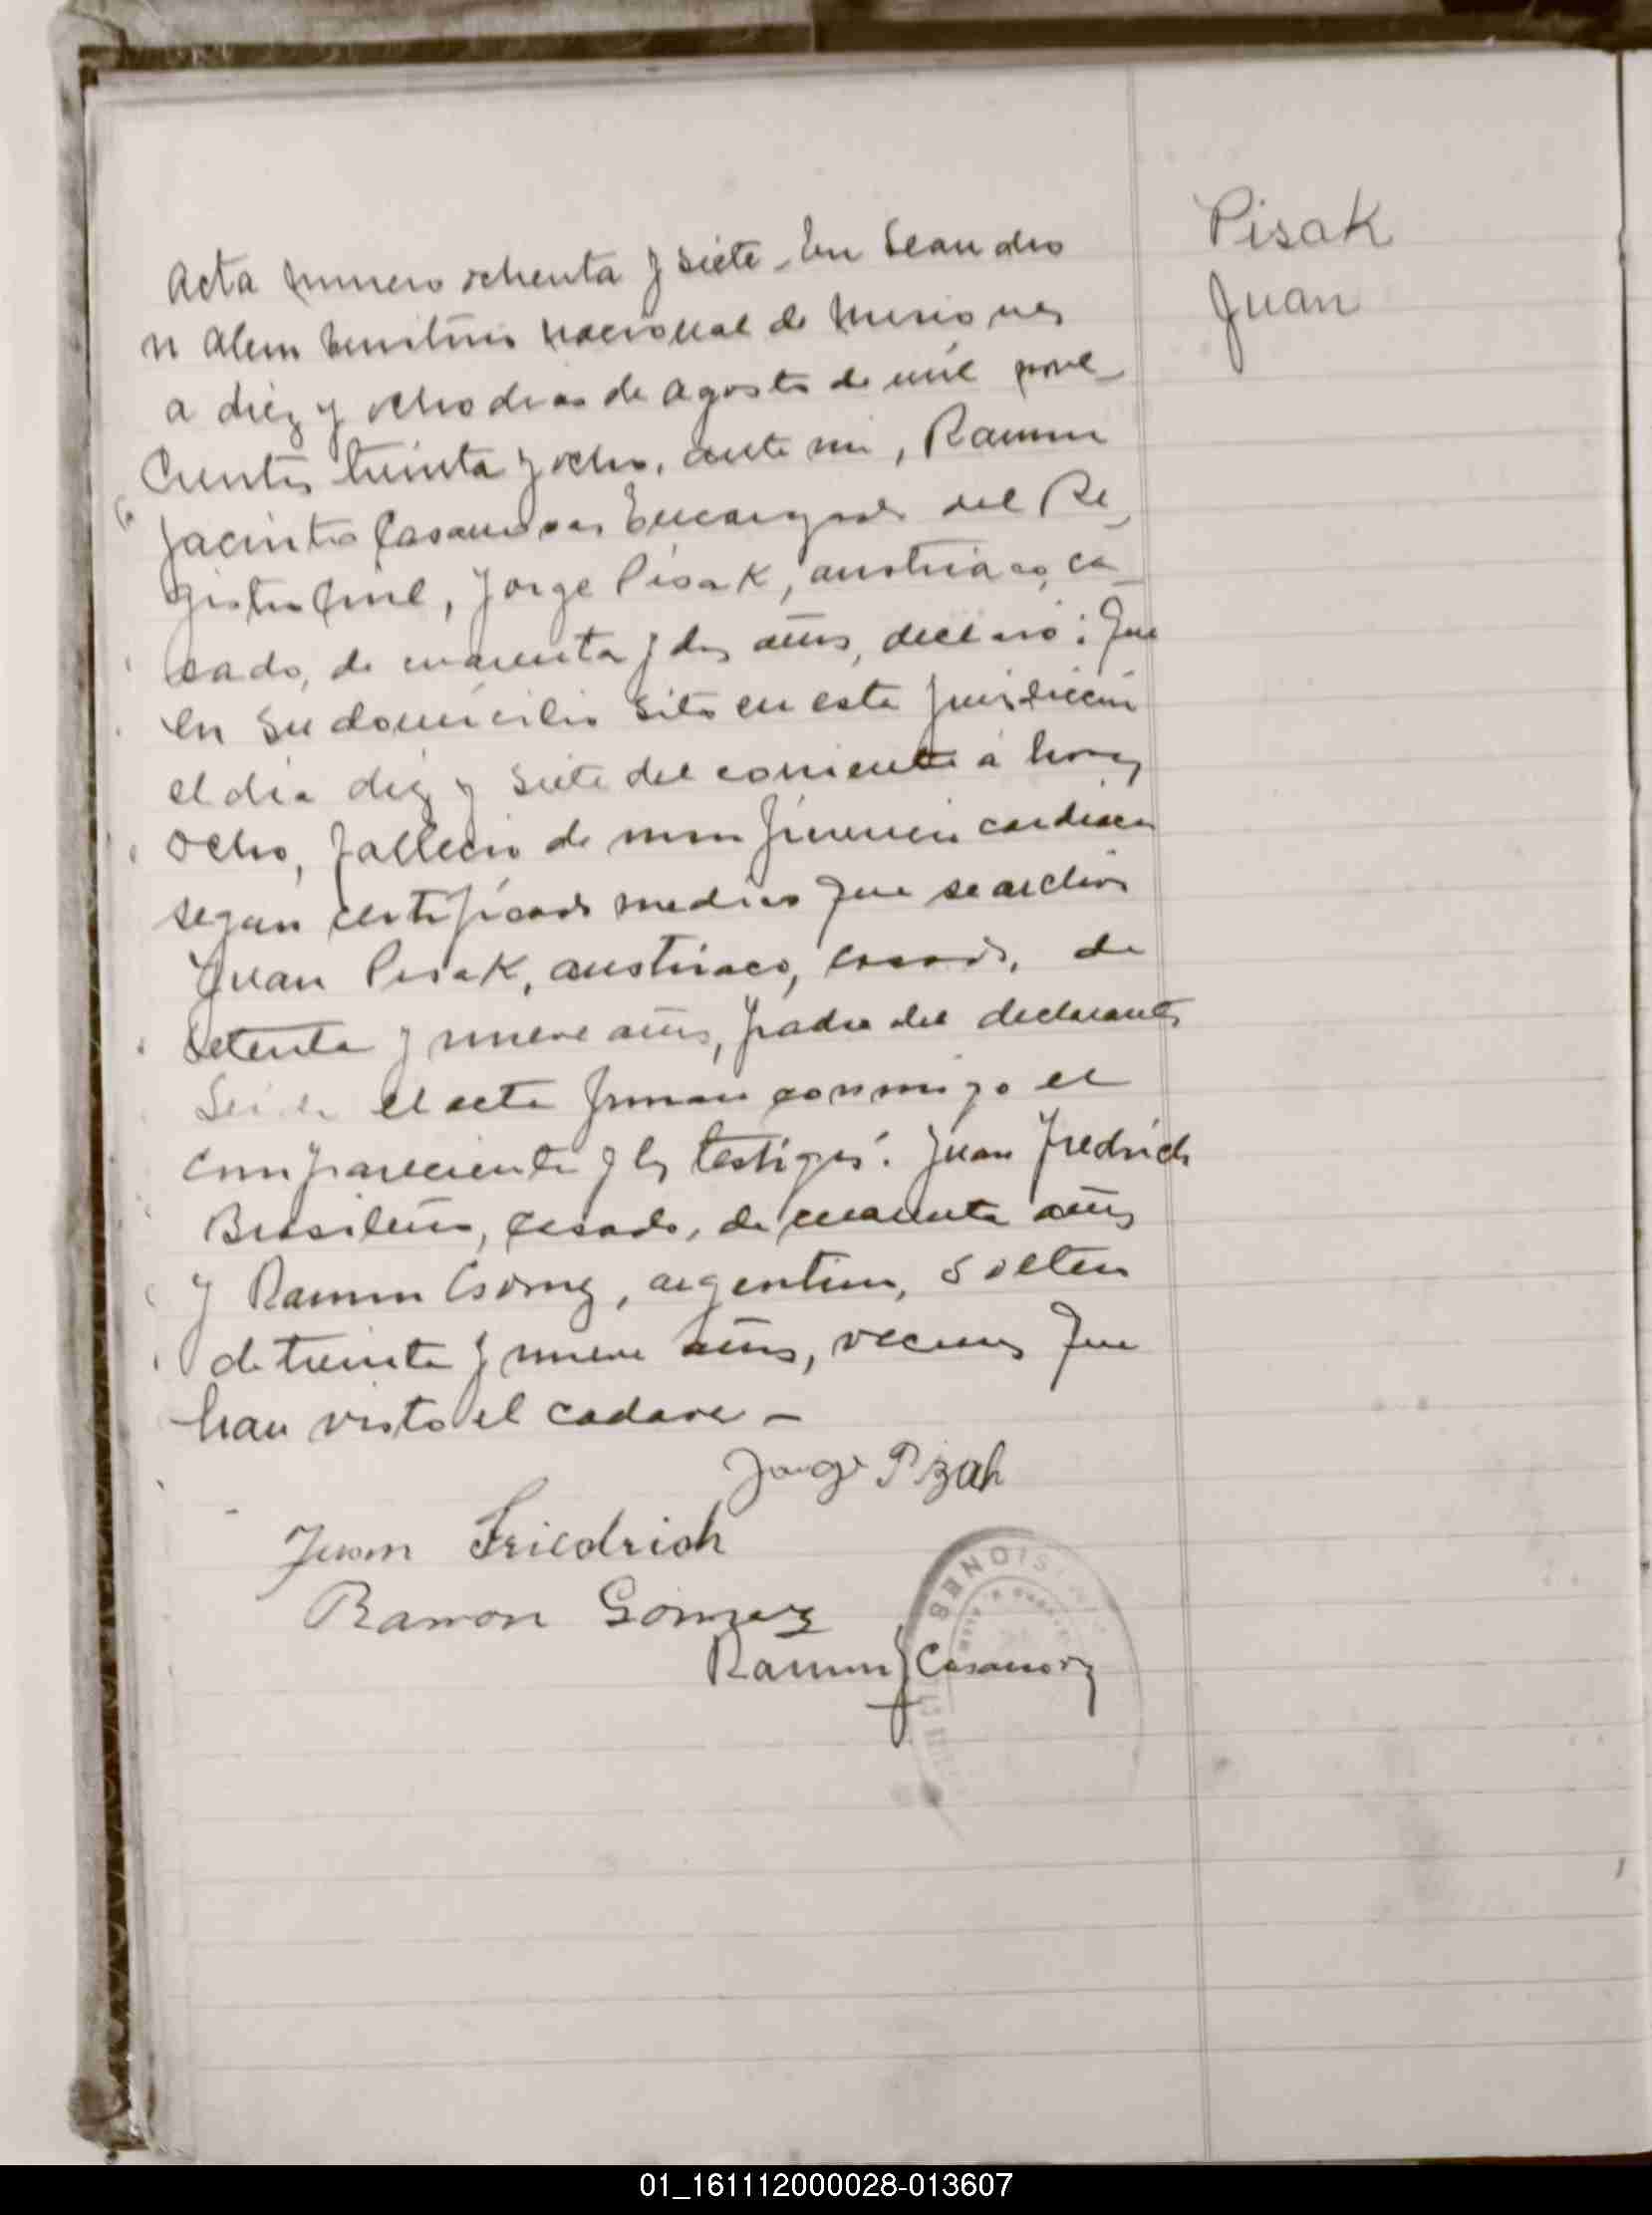 Pisak
Juan
Acta numero ochenta y siete - En Leandro
N Alem territorio nacional de Misiones
a diez y ocho dias de Agosto de mil nove_
cientos treinta y ocho, ante mi, Ramon
Jacinto Casanovas Encargado del Re_
gistro Civil, Jorge Pisak, austriaco, ca_
sado, de cuarenta y dos años, declaró: Que
en su domicilio sito en esta jurisdiccion
el dia diez y siete del corriente á horas
ocho, fallecio de cardiaca
segun certificado medico que se archiva
Juan Pisak, austriaco, casado, de
setenta y nueve años, padre del declarante
Leida el acta firman conmigo el
compareciente y los testigos: Juan Fredrich
Brasileño, casado, de cuarenta años
y Ramon Gomez, argentino, soltero
de treinta y nueve años, vecinos que
han visto el cadaver -
Jorge Pizak
Juan Friedrich
Ramon Gomez
Ramon J Casanovas
MISIONES
01_161112000028-013607